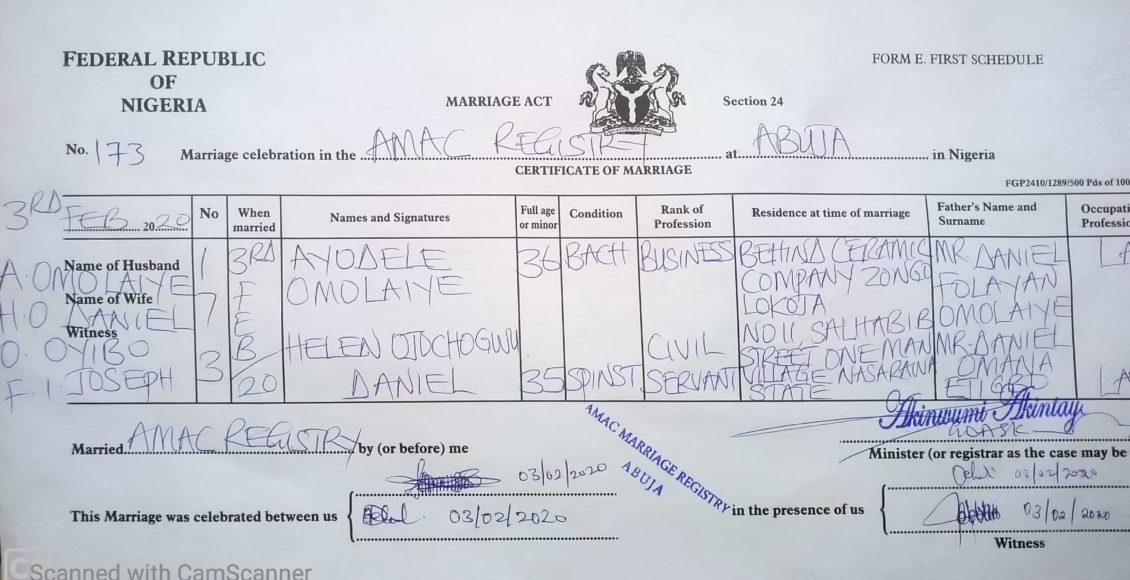 FEDERAL REPUBLIC
OF
NIGERIA
FORM E. FIRST SCHEDULE
MARRIAGE ACT
Section 24
No. 173 Marriage celebration in the AMAC REGISTRY at ABUJA in Nigeria
CERTIFICATE OF MARRIAGE
FGP2410/1289/500 Pds of 100
3RD FEB 2020
No
When married
Names and Signatures
Full age or minor
Condition
Rank of Profession
Residence at time of marriage
Father's Name and Surname
Occupati
Professi
Name of Husband
A. OMOLAIYE
Name of Wife
H.O. DANIEL
Witness
O. OYIBO
F. I. JOSEPH
173
3RD
FEB
20
AYODELE
OMOLAIYE
HELEN OJOCHOGWU
DANIEL
36
35
BACH
SPINST
BUSINESS
CIVIL
SERVANT
BEHIND CERAMIC
COMPANY ZONGO
LOKOJA
NO 11, SALHABIB
STREET ONE MAN
VILLAGE NASARAWA
STATE
MR. DANIEL
FOLAYAN
OMOLAIYE
MR. DANIEL
OMANA
LA
LA
Married AMAC REGISTRY by (or before) me
AMAC MARRIAGE REGISTRY
ABUJA
Akinwumi Akintay
Minister (or registrar as the case may be
03/02/2020
03/02/2020
This Marriage was celebrated between us
03/02/2020
in the presence of us
03/02/2020
Witness
Scanned with CamScanner